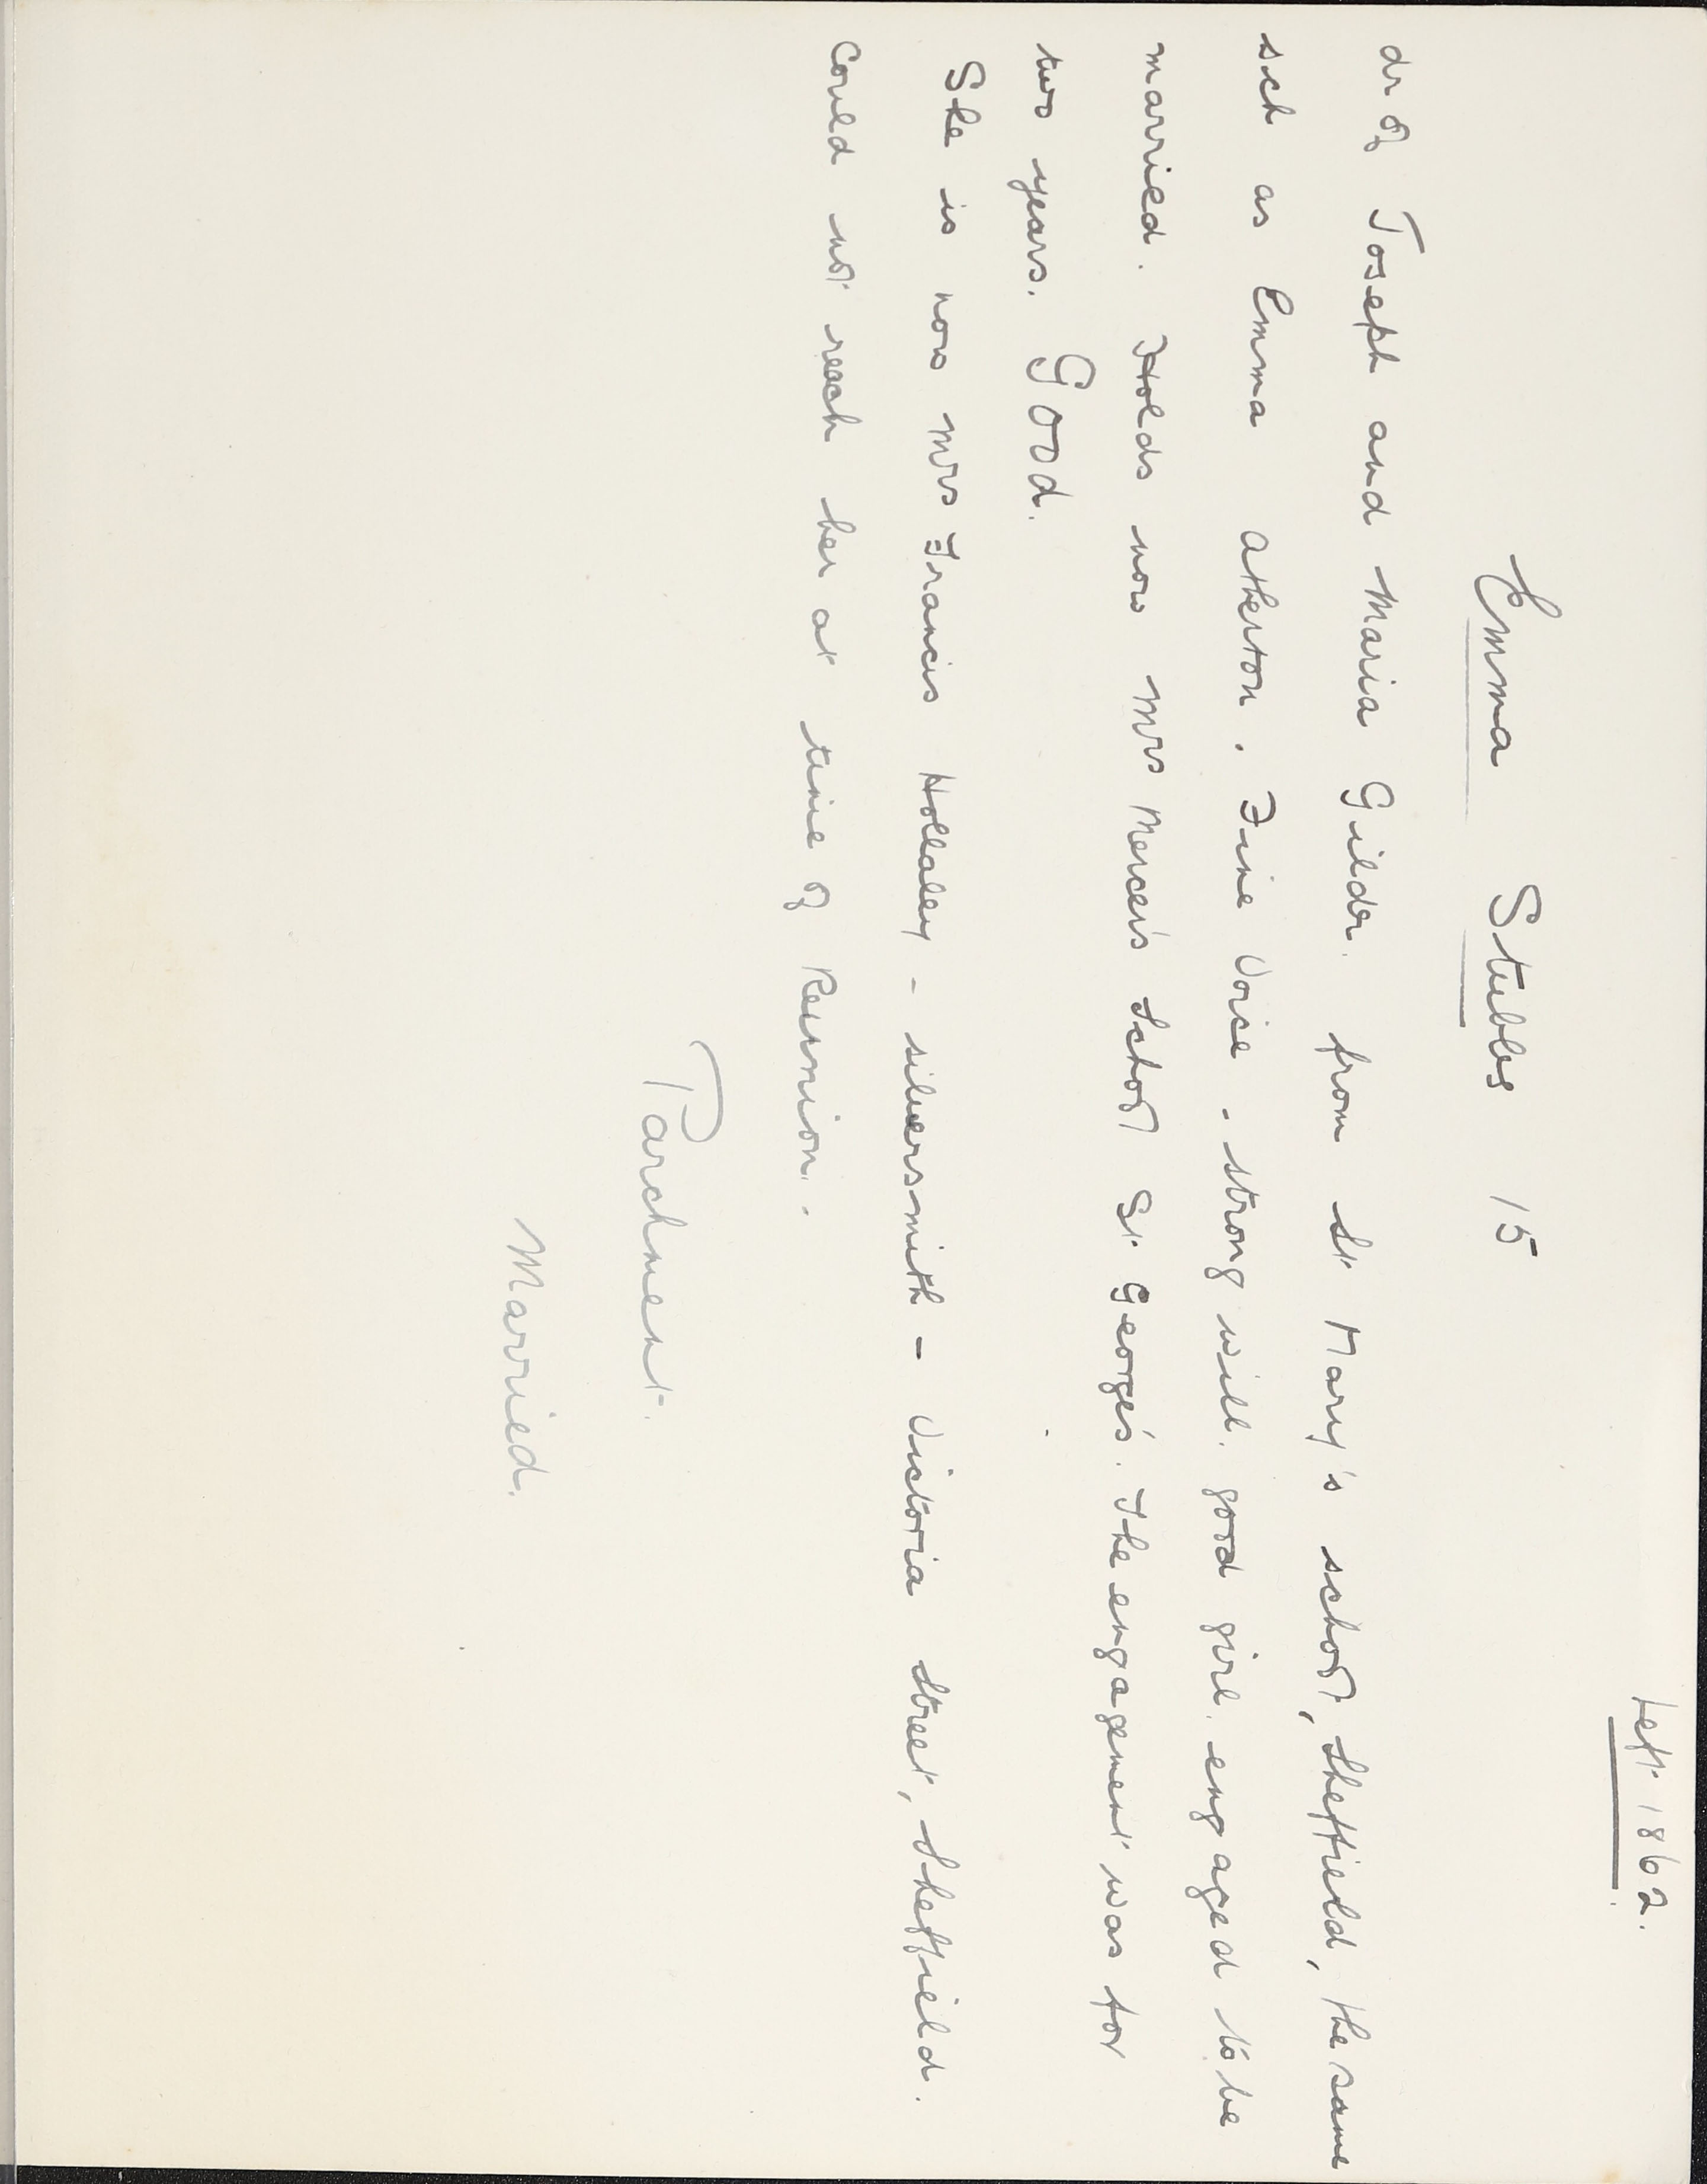 Left 1862.
Emma Stubbs 15
dr of Joseph and Maria Gilder. from St Mary's school, Sheffield, the same
sch as Emma Atherton. Fine Voice. strong will. good girl. engaged to be
married. Holds now Mrs Mercer's School St. George's. The engagement was for
two years. Good.
She is now Mrs Francis Hollaley - silversmith - Victoria Street, Sheffield.
Could not reach her at time of Reunion. -
Parchment.
Married.